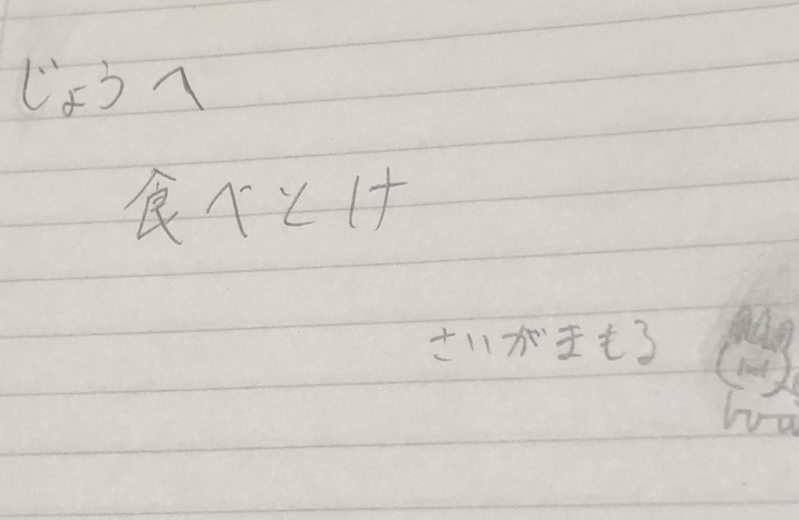 じょうへ
食べとけ
さいがまもる